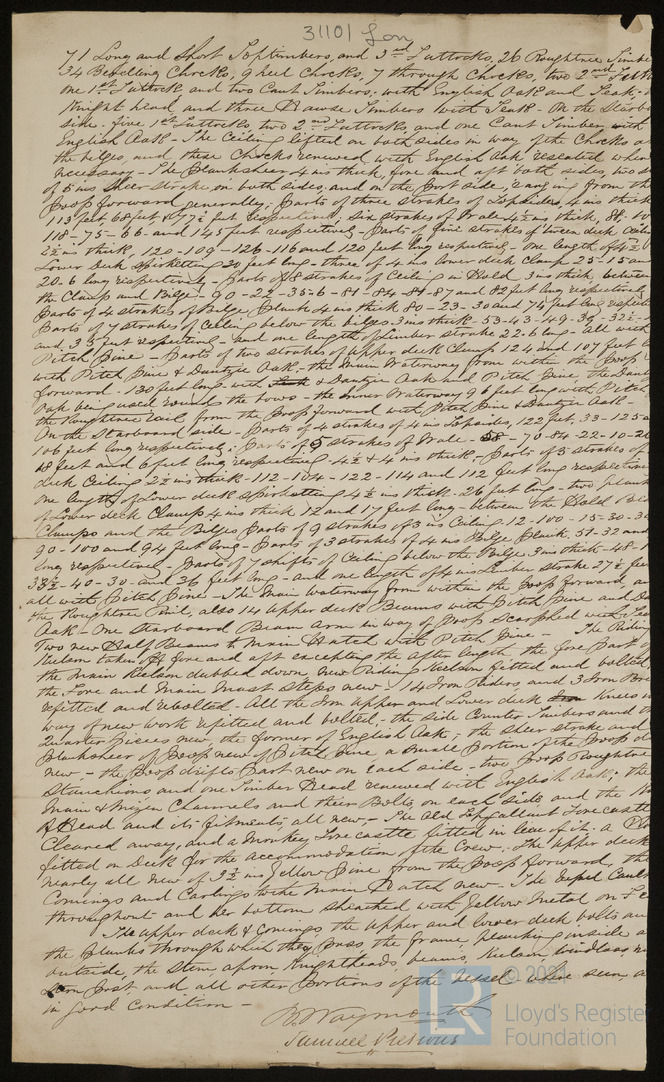 31101 Lon
71 Long and Short Toptimbers, and 3rd Futtocks, 26 Roughtree Timbers
34 Bevelling Chocks, 9 heel Chocks, 7 through Chocks, two 2nd Futt
one 1st Futtock and two Cant Timbers, with English Oak and Teak
Knight head, and three Hawse Timbers with Teak - On the Starbo
side - five 1st Futtocks, two 2nd Futtocks, and one Cant Timber with
English Oak - The Ceiling lifted on both sides in way of the Chocks a
the bilges, and these Chocks renewed with English Oak rescated where
necessary - The Planksheer 4 ins thick, fore and aft both sides, two s
of 5 ins Sheer strake on both sides, and on the port side, ranging from the
Poop forward generally; Parts of three strakes of Topsides, 4 ins thick
113 feet 68 feet & 77½ feet respectively, six strakes of Wale 4½ ins thick, 88-
118-75-66- and 145 feet respectively - Parts of five strakes of tween deck ceil
2½ ins thick, 120-109-126-116 and 120 feet long respectively - one length of 4½
Lower Deck Spirketting 21 feet long - three of 4 ins lower deck Clamp 25-15 an
20-6 long respectively - Parts of 8 strakes of Ceiling in Hold 3 ins thick between
the Clamp and Bilge - 90-22-35-6-81-84-84-87 and 82 feet long respectively
Parts of 4 strakes of Bilge Plank 4 ins thick 80-23-30 and 74 feet long respecti
Parts of 7 strakes of Ceiling below the bilges 3 ins thick - 53-43-49-39-32½
and 35 feet respectively - and one length of Limber strake 22.6 long - all with
Pitch Pine - Parts of two strakes of upper deck Clamp 124 and 107 feet l
with Pitch Pine & Dantzic Oak - the Main Waterway from within the Poop
forward - 130 feet long with & Dantzic Oak and Pitch Pine, the Dant
Oak being used round the bows - the inner Waterway 96 feet long with Pitch
the Roughtree rail from the Poop forward with Pitch Pine & Dantzic Oak -
On the Starboard side - Parts of 4 strakes of 4 ins Topsides, 122 feet, 33-125 a
106 feet long respectively; Parts of 5 strakes of Wale - 58-70-84-22-10-2
18 feet and 6 feet long respectively 4½ & 4 ins thick - Parts of 5 strakes of
deck Ceiling 2½ ins thick - 112-104-122-114 and 112 feet long respective
one length of Lower deck Spirketting 4½ ins thick 26 feet long - two plank
of Lower deck Clamp 4 ins thick 12 and 17 feet long - between the Hold B
Clamps and the Bilges Parts of 9 strakes of 3 ins Ceiling 12-100-15-30-3
90-100 and 94 feet long - Parts of 3 strakes of 4 ins Bilge Plank 51-32 and
long respectively - Parts of 7 shifts of Ceiling below the Bilge 3 ins thick - 48-
33½-40-30- and 26 feet long - and one length of 4 ins Limber strake 27½ feet
all with Pitch Pine - The Main Waterway from within the Poop forward, a
the Roughtree Rail, also 14 Upper deck Beams with Pitch Pine and Da
Oak - One Starboard Beam Arm in way of Poop Scarphed with
Two new Half Beams to Main Hatch with Pitch Pine - The Riding
Kielson taken off fore and aft excepting the after length the fore Part of
the Main Kielson dubbed down, new Riding Kielson fitted and bolted,
the Fore and Main Mast Steps new - 14 Iron Riders and 3 Iron Bre
refitted and rebolted - All the Iron Upper and Lower deck Knees in
way of new work refitted and bolted - the side Counter Timbers and
Quarter Pieces new, the former of English Oak; the Sheer strake and
planksheer of Poop new of Pitch Pine a Small Portion of the Poop d
new - the Poop drifts Part new on each side - two Poop Roughtree
Stanchions and one Timber Head renewed with English Oak; the
Main & Mizen Channels and their Bolts, on each side, and the
of Head and its fitments, all new - The old Topgallant Forecastle
Cleared away, and a Monkey Forecastle fitted in lieu of it: a
fitted on Deck for the accommodation of the Crew - The Upper deck
nearly all new of 3½ ins Yellow Pine from the Poop forward, the
Comings and Carlings to the Main Hatch new - The Vessel Caulk
throughout and her bottom sheathed with Yellow Metal on Fe
The Upper deck & Comings, the Upper and Lower deck bolts and
the planks through which they pass, the Frame, planking inside a
outside, the Stem, apron, Knightheads, beams, Kielson, windlass,
Stern post, and all other Portions of the Vessel where seen, a
in good Condition -
Waymouth
Samuel Pretious
© 2021
LR
Lloyd's Register
Foundation